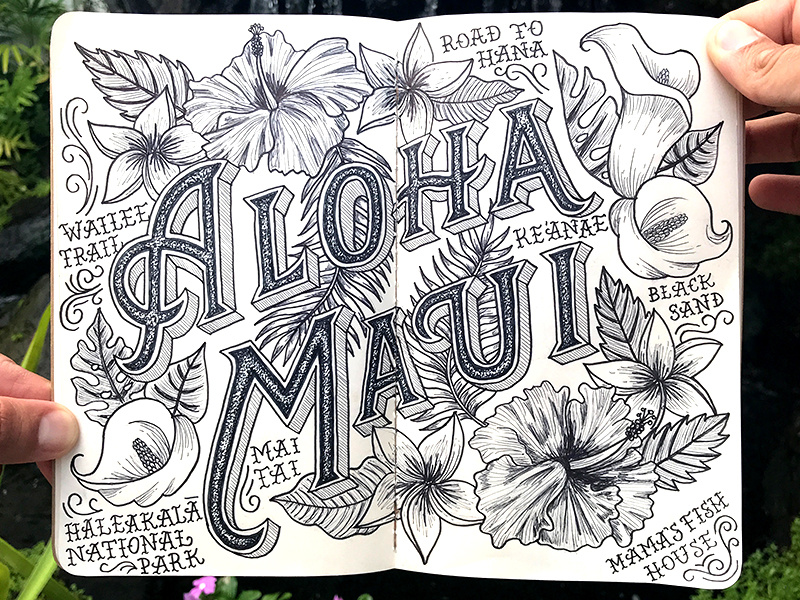 ROAD TO
HANA
ALOHA
WAILEE
TRAIL
KE'ANAE
BLACK
SAND
MAUI
MAI
TAI
HALEAKALĀ
NATIONAL
PARK
MAMA'S FISH
HOUSE